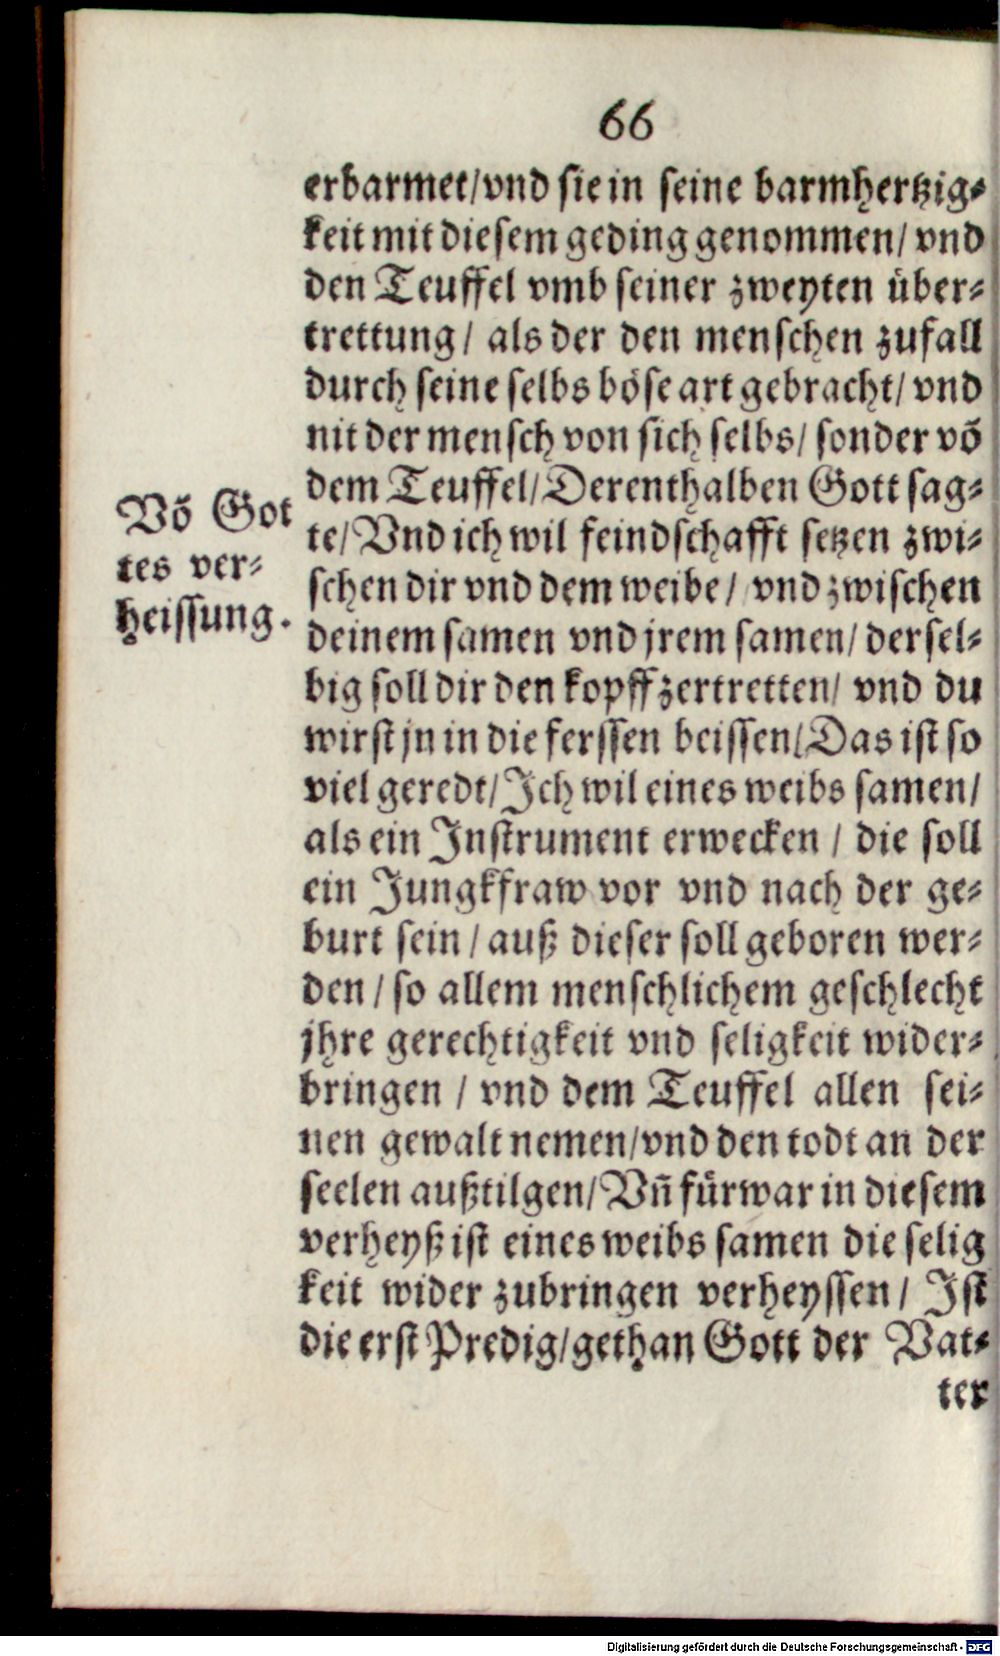 66
erbarmet/vnd sie in seine barmhertzig-
keit mit diesem geding genommen/ vnd
den Teuffel vmb seiner zweyten über-
trettung/ als der den menschen zufall
durch seine selbs böse art gebracht/ vnd
nit der mensch von sich selbs/ sonder võ
dem Teuffel/Derenthalben Gott sag-
te/Vnd ich wil feindschafft setzen zwi-
schen dir vnd dem weibe/ vnd zwischen
deinem samen vnd jrem samen/ der sel-
big soll dir den kopff zertretten/ vnd du
wirst jn in die ferssen beissen/Das ist so
viel geredt/Ich wil eines weibs samen/
als ein Instrument erwecken / die soll
ein Jungkfraw vor vnd nach der ge-
burt sein / auß dieser soll geboren wer-
den / so allem menschlichem geschlecht
jhre gerechtigkeit vnd seligkeit wider-
bringen / vnd dem Teuffel allen sei-
nen gewalt nemen/vnd den todt an der
seelen außtilgen/Vñ fürwar in diesem
verheyß ist eines weibs samen die selig
keit wider zubringen verheyssen/ Ist
die erst Predig/gethan Gott der Vat-
ter
Võ Got
tes ver-
heissung.
Digitalisierung gefördert durch die Deutsche Forschungsgemeinschaft - DFG